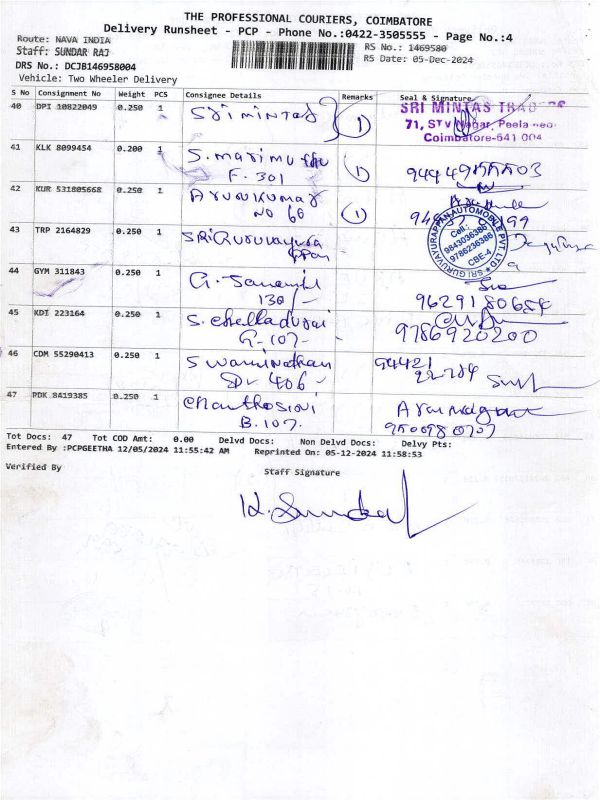 THE PROFESSIONAL COURIERS, COIMBATORE
Delivery Runsheet - PCP - Phone No.:0422-3505555 - Page No.:4
Route: NAVA INDIA
RS No.: 1469580
Staff: SUNDAR RAJ
RS Date: 05-Dec-2024
DRS No.: DCJB146958004
Vehicle: Two Wheeler Delivery
S No Consignment No Weight PCS Consignee Details Remarks Seal & Signature
40 DPI 10822049 0.250 1 Sri mintas 1
SRI MINTAS
71, Nagar, Peela
Coimbatore-641 004
41 KLK 8099454 0.200 1 S. marimuthu 1
F. 301
42 KUR 531805668 0.250 1 Arunkumar 1
No 60
43 TRP 2164829 0.250 1 SRi Guruvayura
ppan
SRI GURUVAYURAPPAN AUTOMOBILE PVT. LTD
Cell.:
9843036386
9786236386
CBE-4
44 GYM 311843 0.250 1 G.
130/-
9629180684
45 KDI 223164 0.250 1 S. chelladurai
G-107-
9786920200
46 CDM 55290413 0.250 1 Swaminathan 94421
406 - 22784
47 PDK 8419385 0.250 1
B. 107.
Tot Docs: 47 Tot COD Amt: 0.00 Delvd Docs: Non Delvd Docs: Delvy Pts:
Entered By :PCPGEETHA 12/05/2024 11:55:42 AM Reprinted On: 05-12-2024 11:58:53
Verified By
Staff Signature